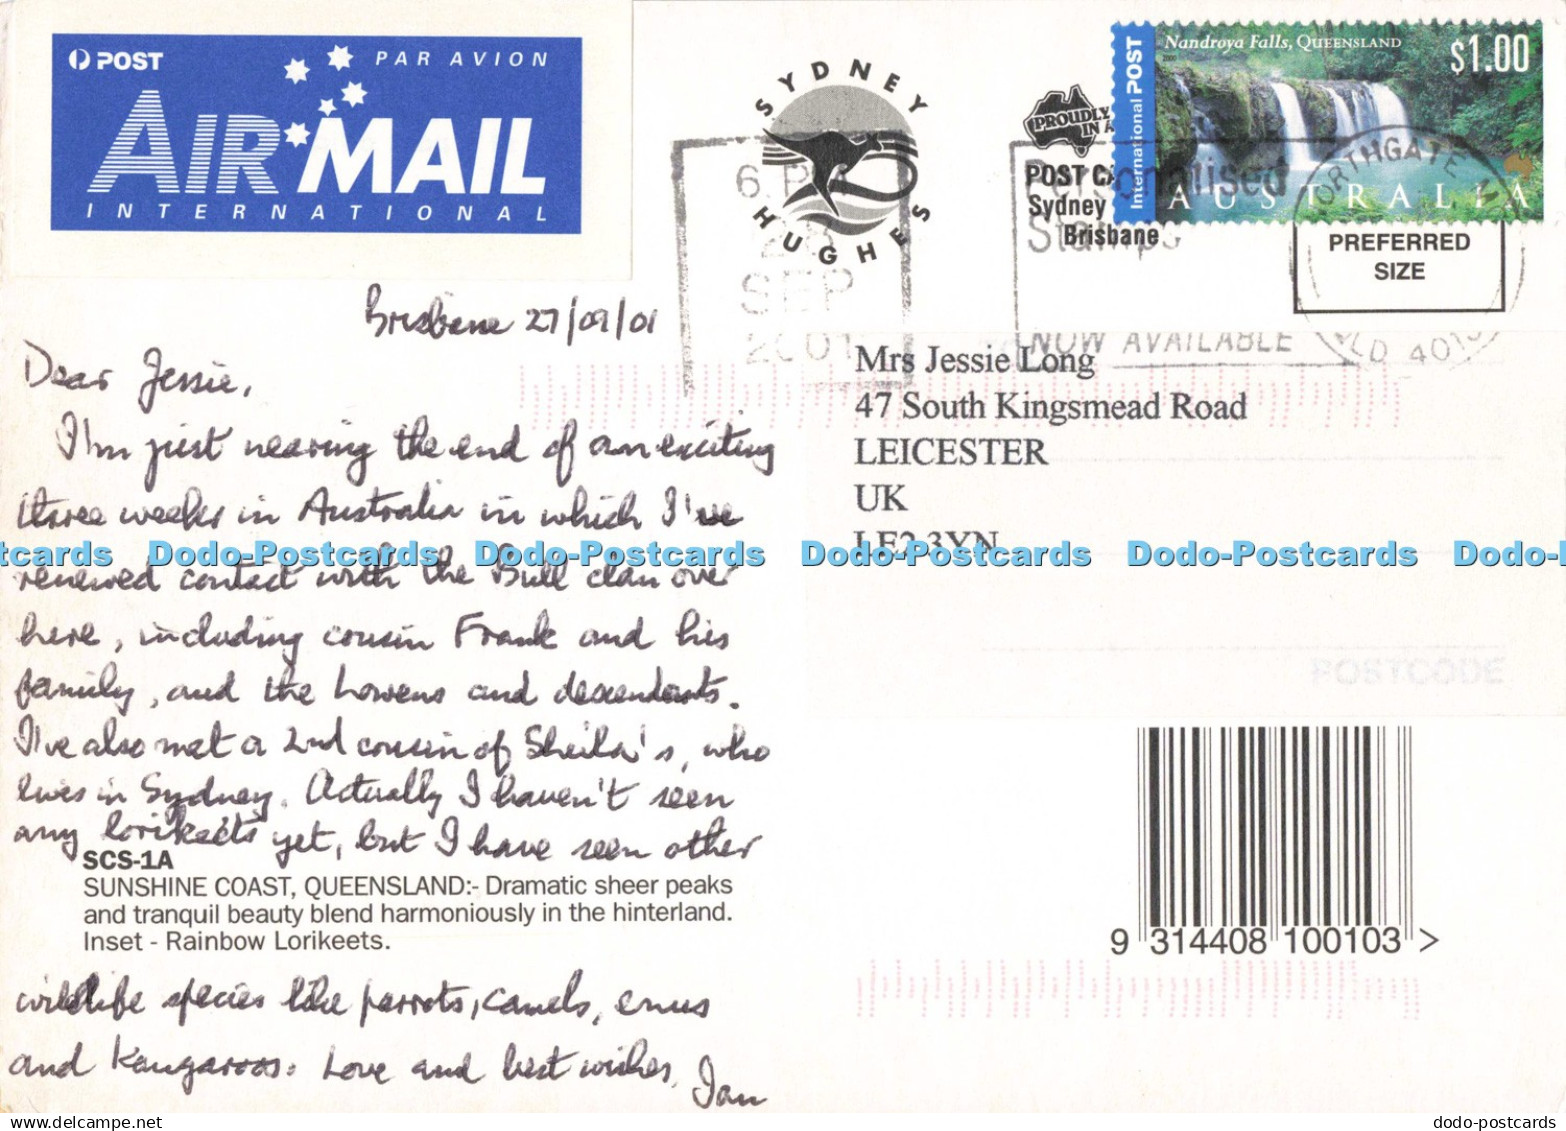 POST
PAR AVION
AIR MAIL
INTERNATIONAL
SYDNEY
HUGHES
PROUDLY
IN A
POST CA
Sydney
Brisbane
International POST
Nandroya Falls, QUEENSLAND
2000
$1.00
AUSTRALIA
PREFERRED
SIZE
6 P
28
SEP
2001
Personalised
Stamps
NOW AVAILABLE
NORTHGATE M
QLD 4013
Brisbane 27/09/01
Dear Jessie,
I'm just nearing the end of an exciting
three weeks in Australia in which I've
renewed contact with the Bull clan over
here, including cousin Frank and his
family, and the Lowens and descendants.
I've also met a 2nd cousin of Sheila's, who
lives in Sydney. Actually I haven't seen
any lorikeets yet, but I have seen other
SCS-1A
SUNSHINE COAST, QUEENSLAND:- Dramatic sheer peaks
and tranquil beauty blend harmoniously in the hinterland.
Inset - Rainbow Lorikeets.
wildlife species like parrots, camels, emus
and Kangaroos. Love and best wishes, Ian
Mrs Jessie Long
47 South Kingsmead Road
LEICESTER
UK
LE2 3YN
POSTCODE
9 314408 100103 >
tcards Dodo-Postcards Dodo-Postcards Dodo-Postcards Dodo-Postcards Dodo-P
dodo-postcards.com